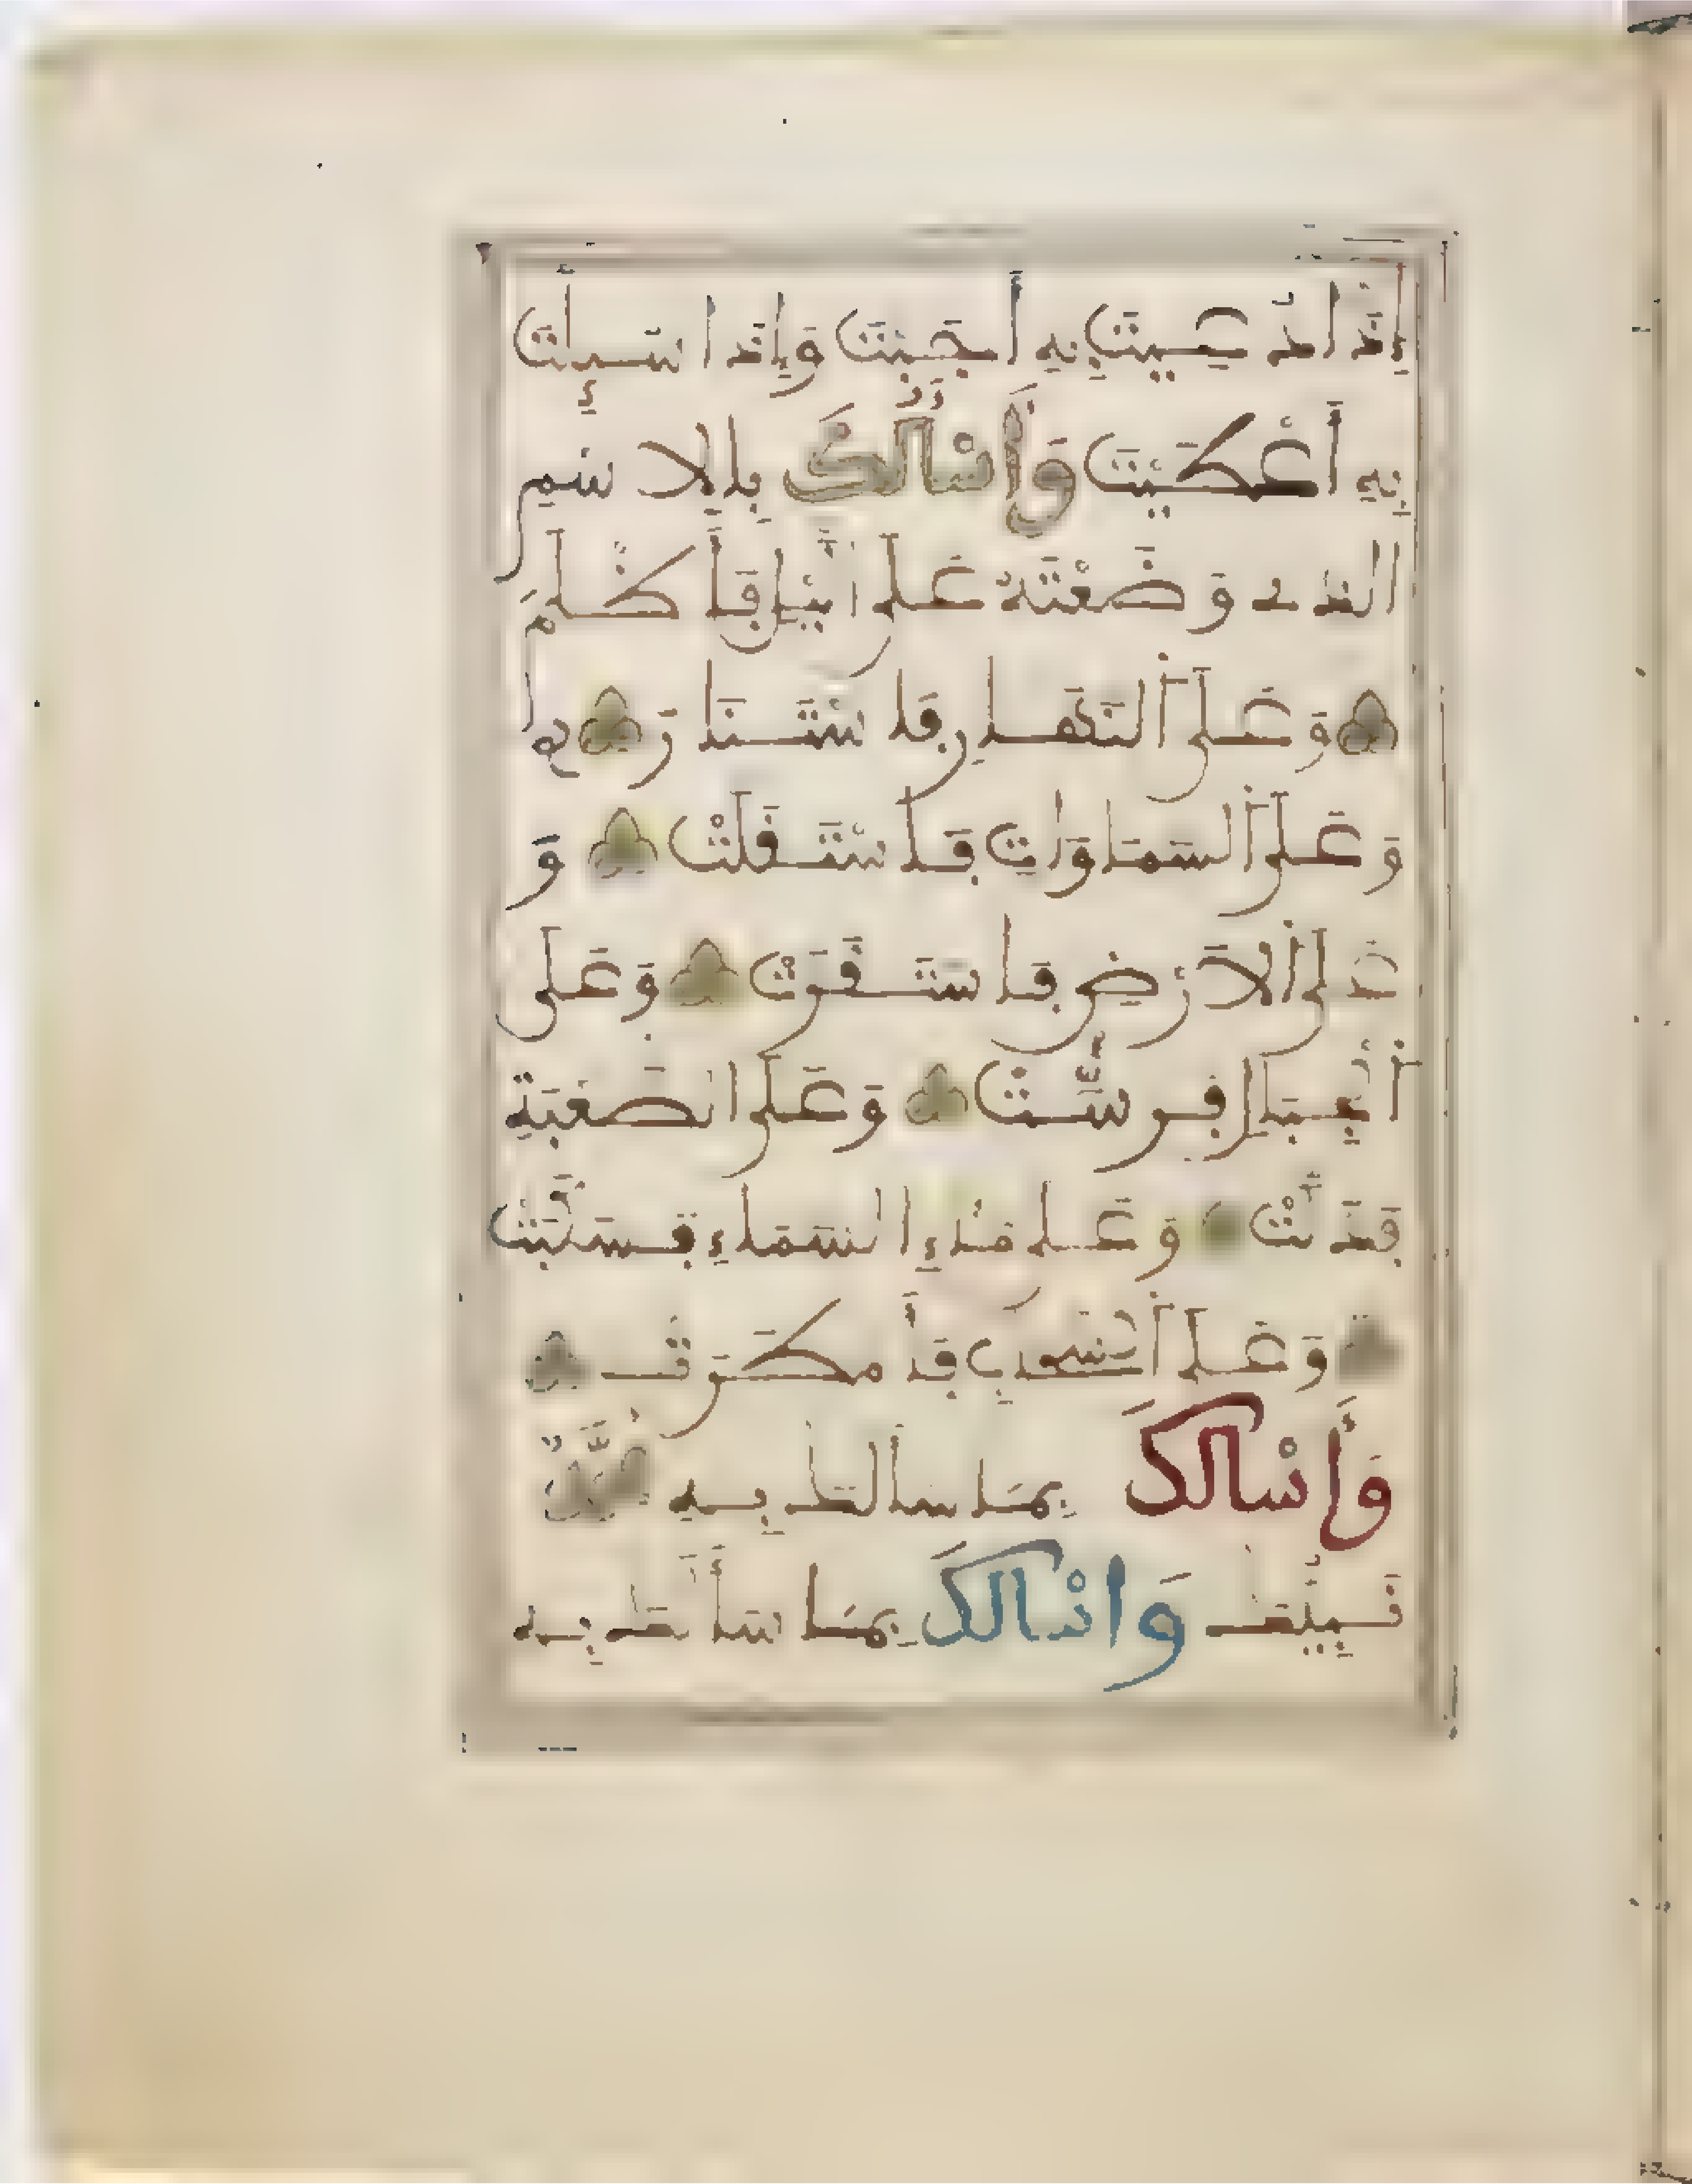 إِذَا دُعِيتَ بِهِ أَجَبْتَ وَإِذَا سُئِلْتَ
بِهِ أَعْطَيْتَ وَأَسْأَلُكَ بِالِاسْمِ
الَّذِي وَضَعْتَهُ عَلَى اللَّيْلِ فَأَظْلَمَ
وَعَلَى النَّهَارِ فَاسْتَنَارَ
وَعَلَى السَّمَاوَاتِ فَاسْتَقَلَّتْ وَ
عَلَى الْأَرْضِ فَاسْتَقَرَّتْ وَعَلَى
الْجِبَالِ فَرَسَتْ وَعَلَى الصَّعْبَةِ
فَذَلَّتْ وَعَلَى مَاءِ السَّمَاءِ فَسَكَبَتْ
وَعَلَى السَّحَابِ فَأَمْطَرَتْ
وَأَسْأَلُكَ بِمَا سَأَلَكَ بِهِ مُحَمَّدٌ
نَبِيُّكَ وَأَسْأَلُكَ بِمَا سَأَلَكَ بِهِ